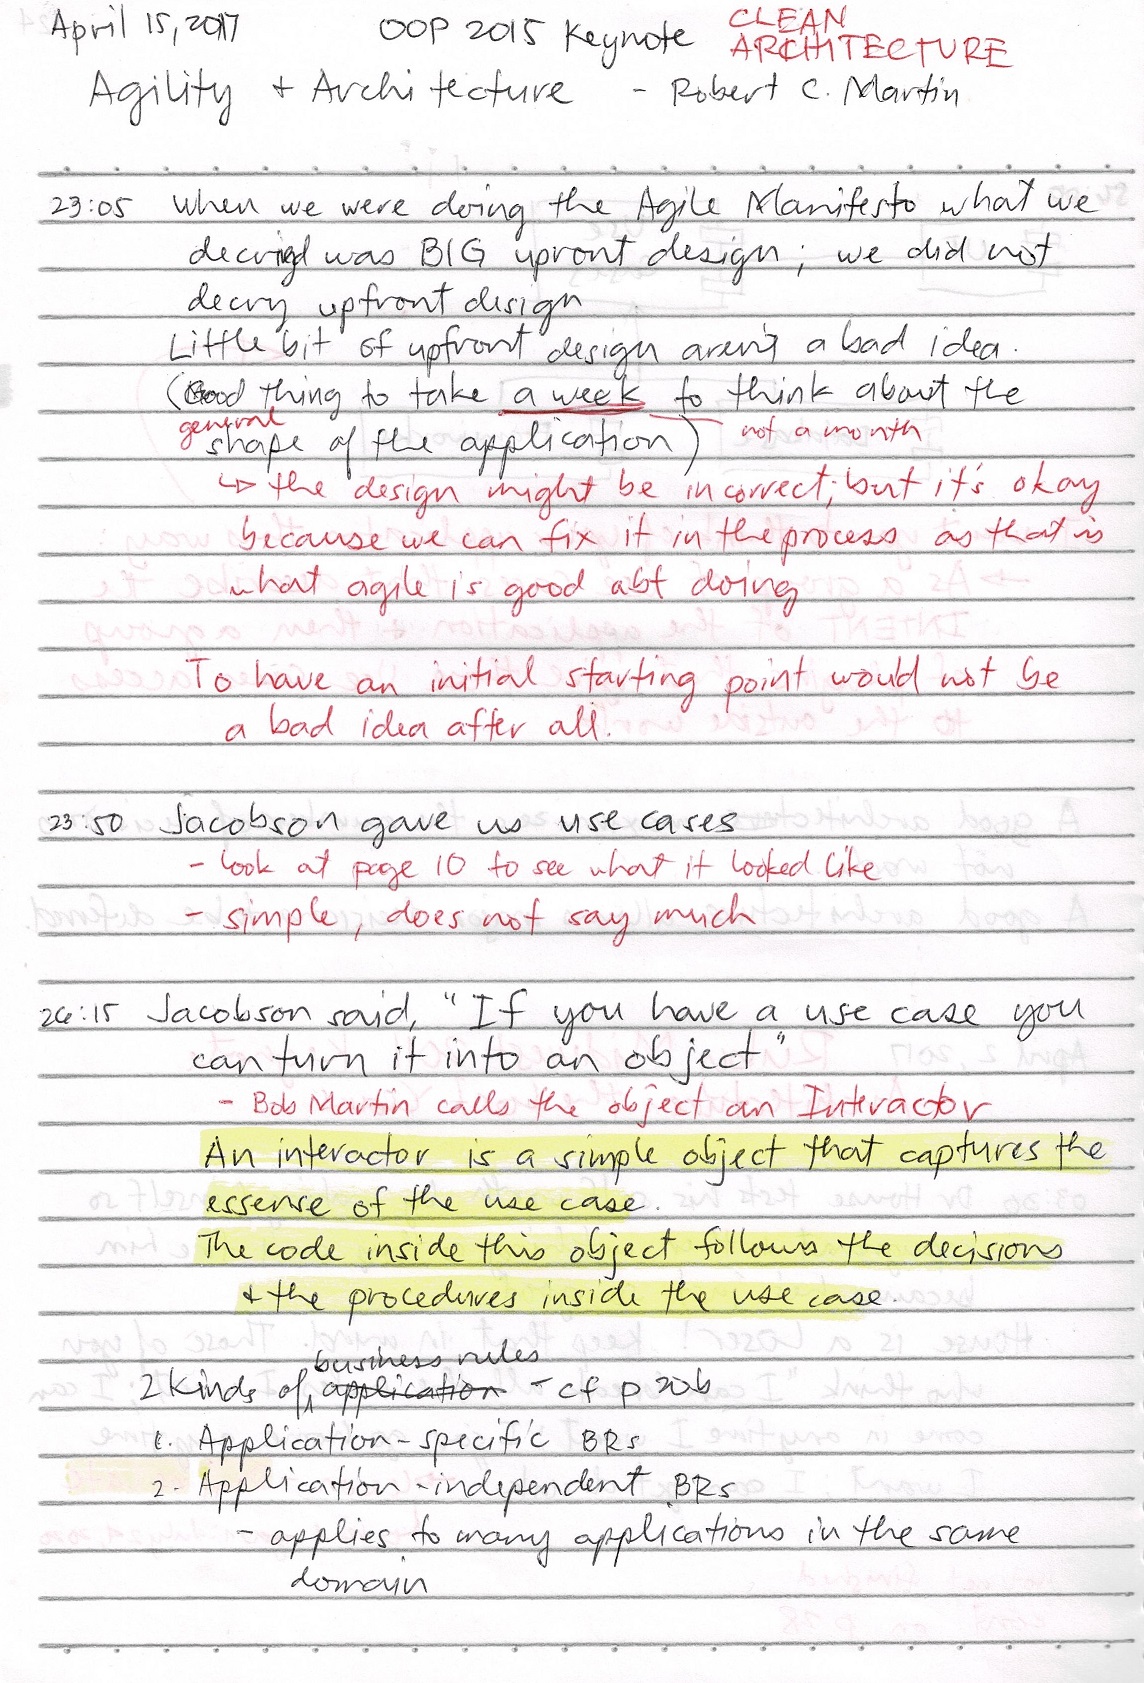 April 15, 2017 OOP 2015 Keynote CLEAN
ARCHITECTURE
Agility + Architecture - Robert C. Martin
23:05 when we were doing the Agile Manifesto what we
decried was BIG upront design; we did not
decry upfront design
Little bit of upfront design aren't a bad idea.
(Good thing to take a week to think about the
general not a month
shape of the application)
↳ the design might be incorrect; but it's okay
because we can fix it in the process as that is
what agile is good abt doing
To have an initial starting point would not be
a bad idea after all.
23:50 Jacobson gave us use cases
- look at page 10 to see what it looked like
- simple, does not say much
26:15 Jacobson said, "If you have a use case you
can turn it into an object"
- Bob Martin calls the object an Interactor
An interactor is a simple object that captures the
essense of the use case.
The code inside this object follows the decisions
+ the procedures inside the use case.
business rules
2 kinds of application - cf p 20b
1. Application-specific BRs
2. Application-independent BRs
- applies to many applications in the same
domain